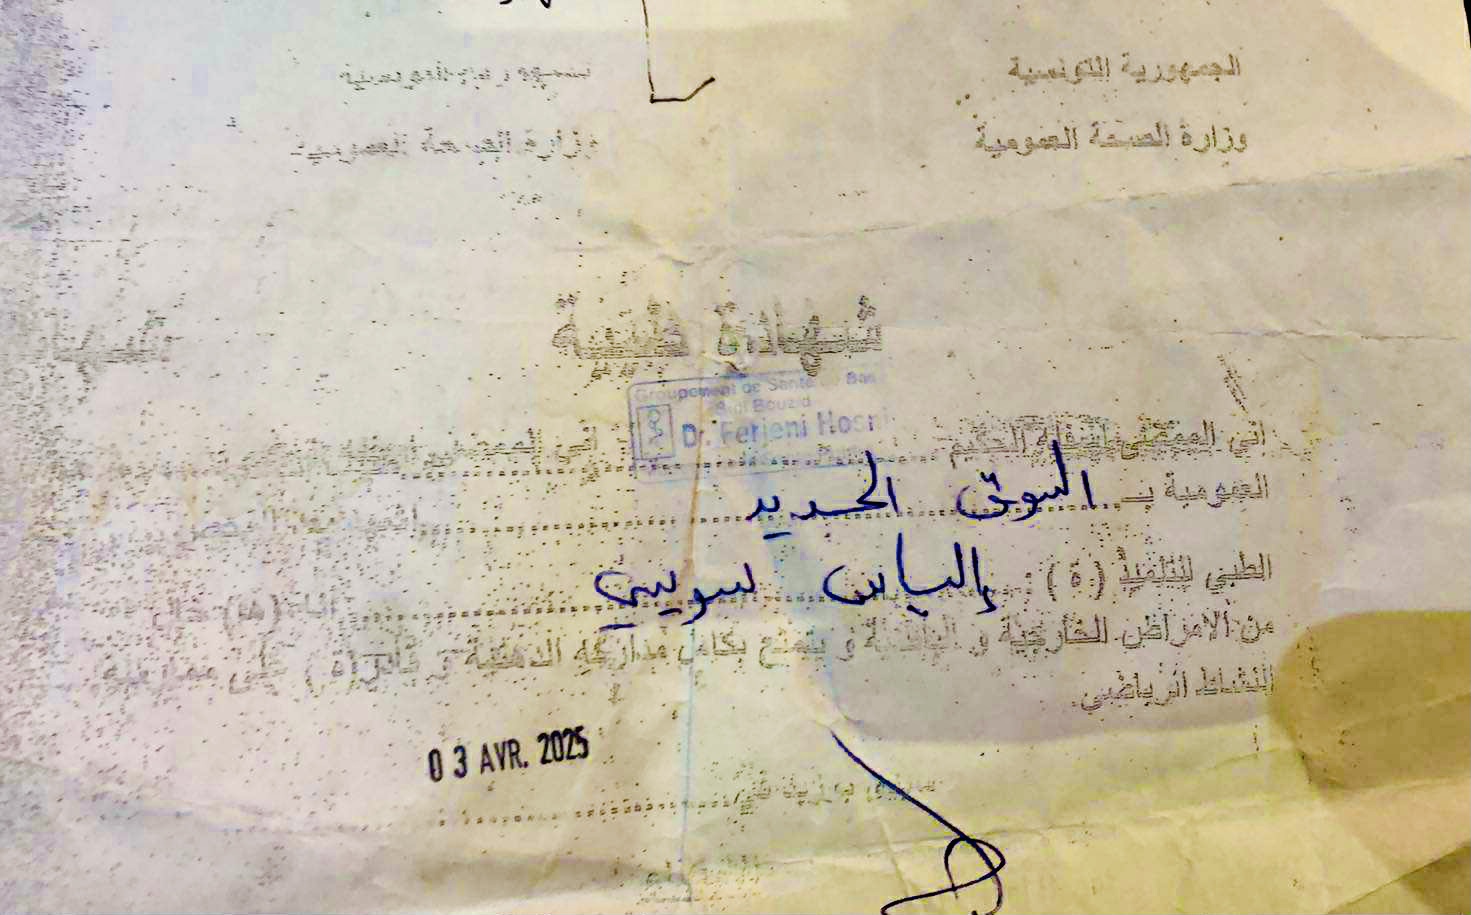 الجمهورية التونسية
وزارة الصحة العمومية
وزارة الصحة العمومية
شهادة طبية
Groupement de Santé de Bas
Sidi Bouzid
Dr. Ferjeni Hosni
اني الممضي اسفله الحكيم
العمومية بـ السوق الجديد
الطبي للتلميذ (ة) : إلياس سويسي انه (ها) خال
من الامراض الخارجية و الباطنية و يتمتع بكامل مداركه الذهنية و قادر (ة) على ممارسة
النشاط الرياضي.
03 AVR. 2025
سيدي بوزيد في